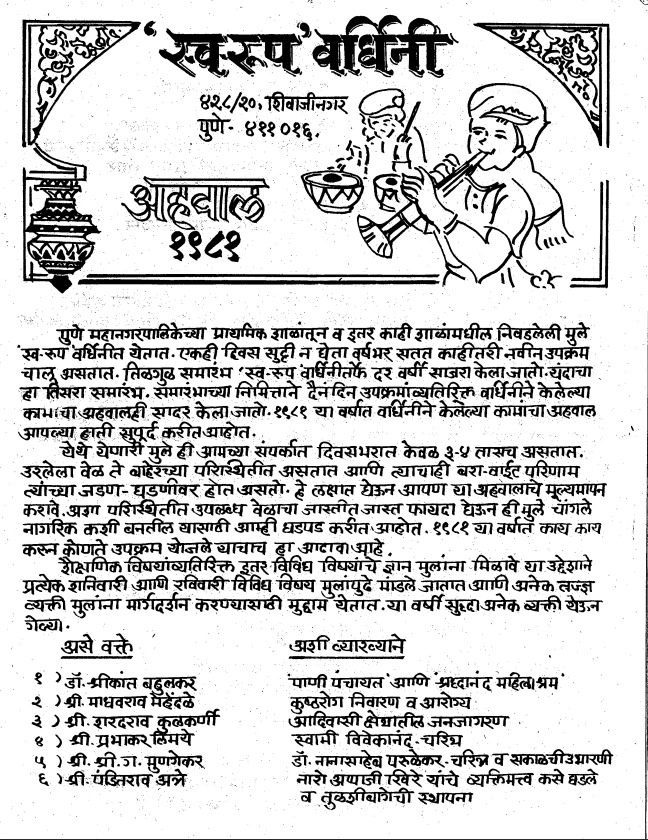 'स्व-रूप' वर्धिनी
४२८/२०, शिवाजीनगर
पुणे- ४११०१६.
अहवाल
१९८१
पुणे महानगरपालिकेच्या प्राथमिक शाळांतून व इतर काही शाळांमधील निवडलेली मुले
'स्व-रूप' वर्धिनीत येतात. एकही दिवस सुट्टी न घेता वर्षभर सतत काहीतरी नवीन उपक्रम
चालू असतात. तिळगुळ समारंभ 'स्व-रूप' वर्धिनीतर्फे दर वर्षी साजरा केला जातो. यंदाचा
हा तिसरा समारंभ. समारंभाच्या निमित्ताने दैनंदिन उपक्रमांव्यतिरिक्त वर्धिनीने केलेल्या
कामाचा अहवालही सादर केला जातो. १९८१ या वर्षात वर्धिनीने केलेल्या कामांचा अहवाल
आपल्या हाती सुपूर्द करीत आहोत.
येथे येणारी मुले ही आमच्या संपर्कात दिवसभरात केवळ ३-४ तासच असतात.
उरलेला वेळ ते बाहेरच्या परिस्थितीत असतात आणि त्याचाही बरा-वाईट परिणाम
त्यांच्या जडण-घडणीवर होत असतो. हे लक्षात घेऊन आपण या अहवालाचे मूल्यमापन
करावे. अशा परिस्थितीत उपलब्ध वेळाचा जास्तीत जास्त फायदा घेऊन ही मुले चांगले
नागरिक कशी बनतील यासाठी आम्ही धडपड करीत आहोत. १९८१ या वर्षात काय काय
करून कोणते उपक्रम योजले याचाच हा आढावा आहे.
शैक्षणिक विषयांव्यतिरिक्त इतर विविध विषयांचे ज्ञान मुलांना मिळावे या उद्देशाने
प्रत्येक शनिवारी आणि रविवारी विविध विषय मुलांपुढे मांडले जातात आणि अनेक तज्ज्ञ
व्यक्ती मुलांना मार्गदर्शन करण्यासाठी मुद्दाम येतात. या वर्षी सुद्धा अनेक व्यक्ती येऊन
गेल्या.
असे वक्ते अशी व्याख्याने
१) डॉ. श्रीकांत बहुलकर पाणी पंचायत आणि श्रध्दानंद महिलाश्रम
२) श्री. माधवराव मेहेंदळे कुष्ठरोग निवारण व आरोग्य
३) श्री. शरदराव कुळकर्णी आदिवासी क्षेत्रातील जनजागरण
४) श्री. प्रभाकर लिमये स्वामी विवेकानंद- चरित्र
५) श्री. श्री. ज. मुणगेकर डॉ. नानासाहेब परुळेकर- चरित्र व सकाळची उभारणी
६) श्री. पंडितराव अत्रे नारो अप्पाजी खिरे यांचे व्यक्तिमत्त्व कसे घडले
व तुळशीबागेची स्थापना